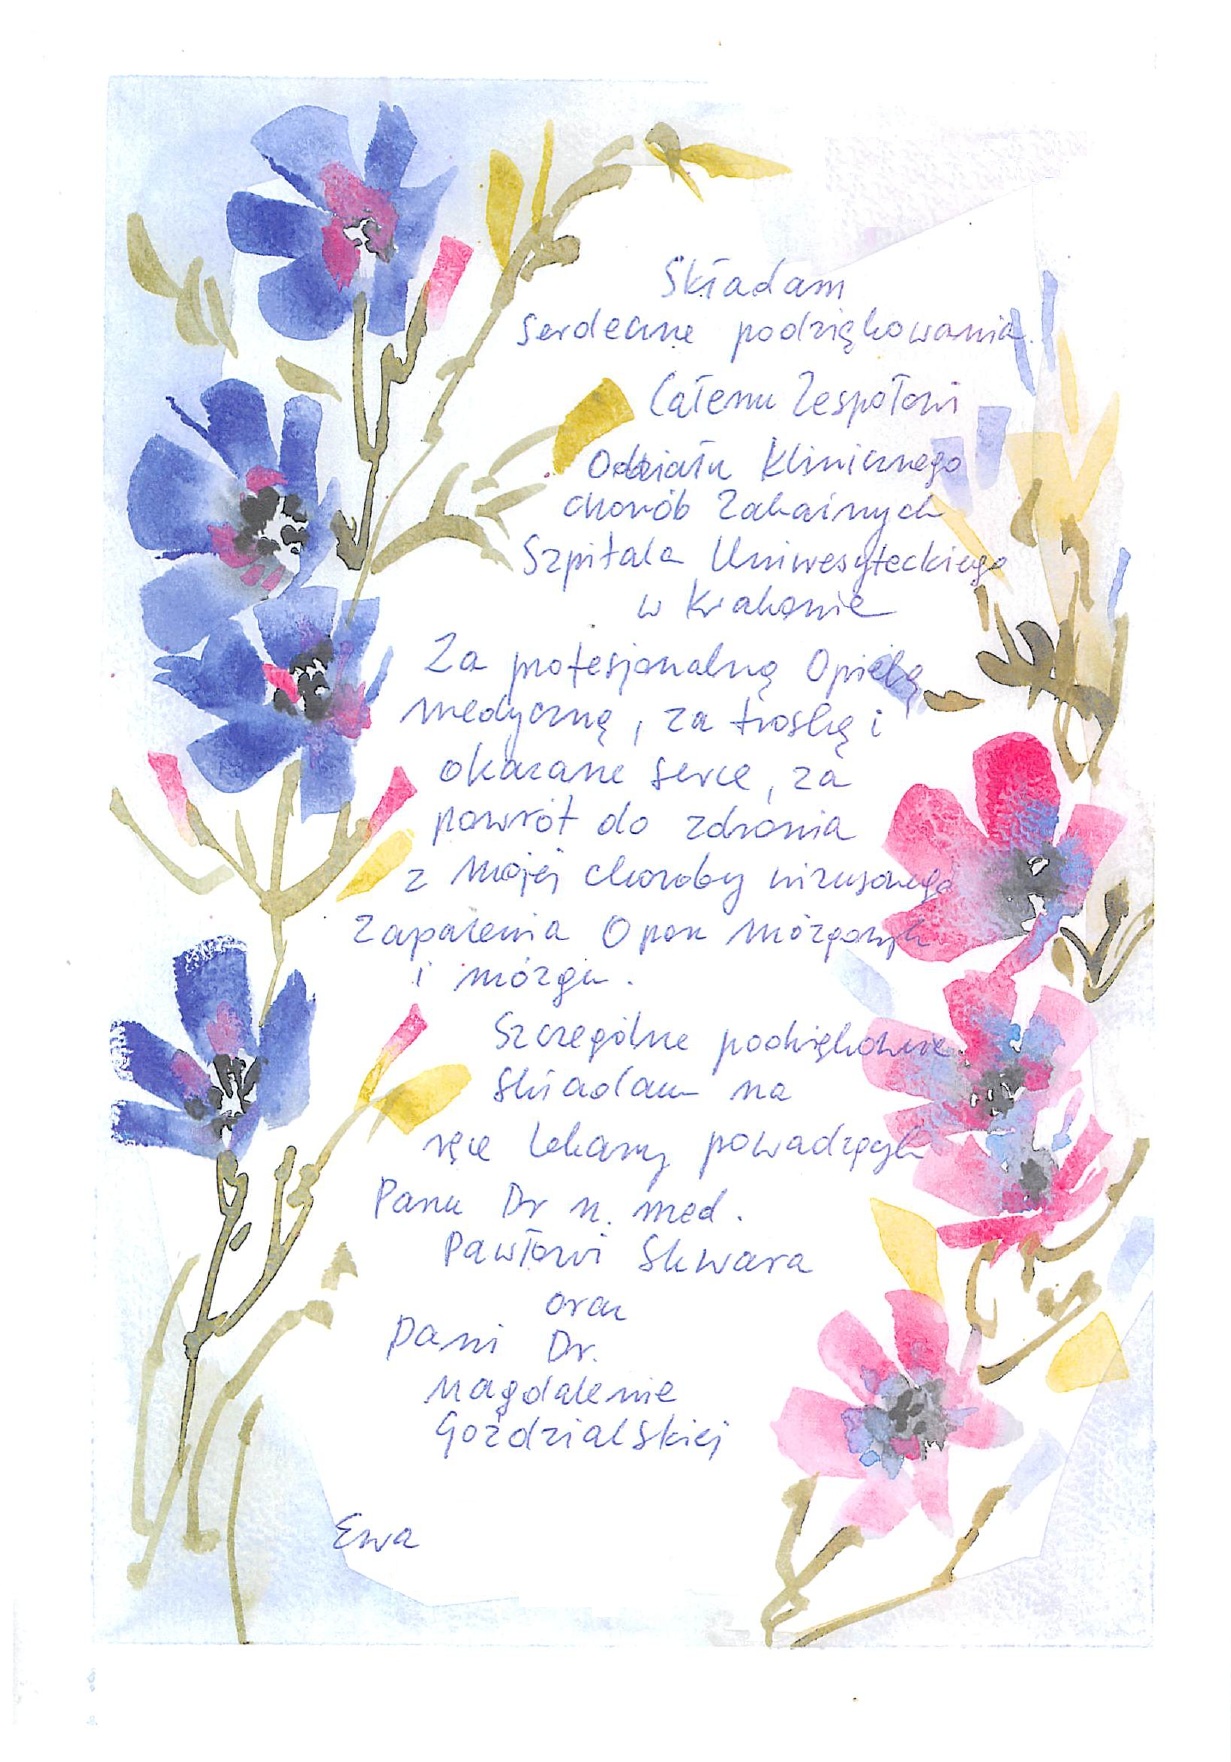 Składam
serdeczne podziękowania.
Całemu Zespołowi
Oddziału Klinicznego
chorób Zakaźnych
Szpitala Uniwesyteckiego
w Krakowie
Za profesjonalną Opiekę
medyczną, za troskę i
okazane serce, za
powrót do zdrowia
z mojej choroby wirusowego
Zapalenia Opon mózgowych
i mózgu.
Szczególne podziękowanie
składam na
ręce lekarzy powadzących
Panu Dr n. med.
Pawłowi Skwara
oraz
Pani Dr.
Magdalenie
Goździalskiej
Ewa